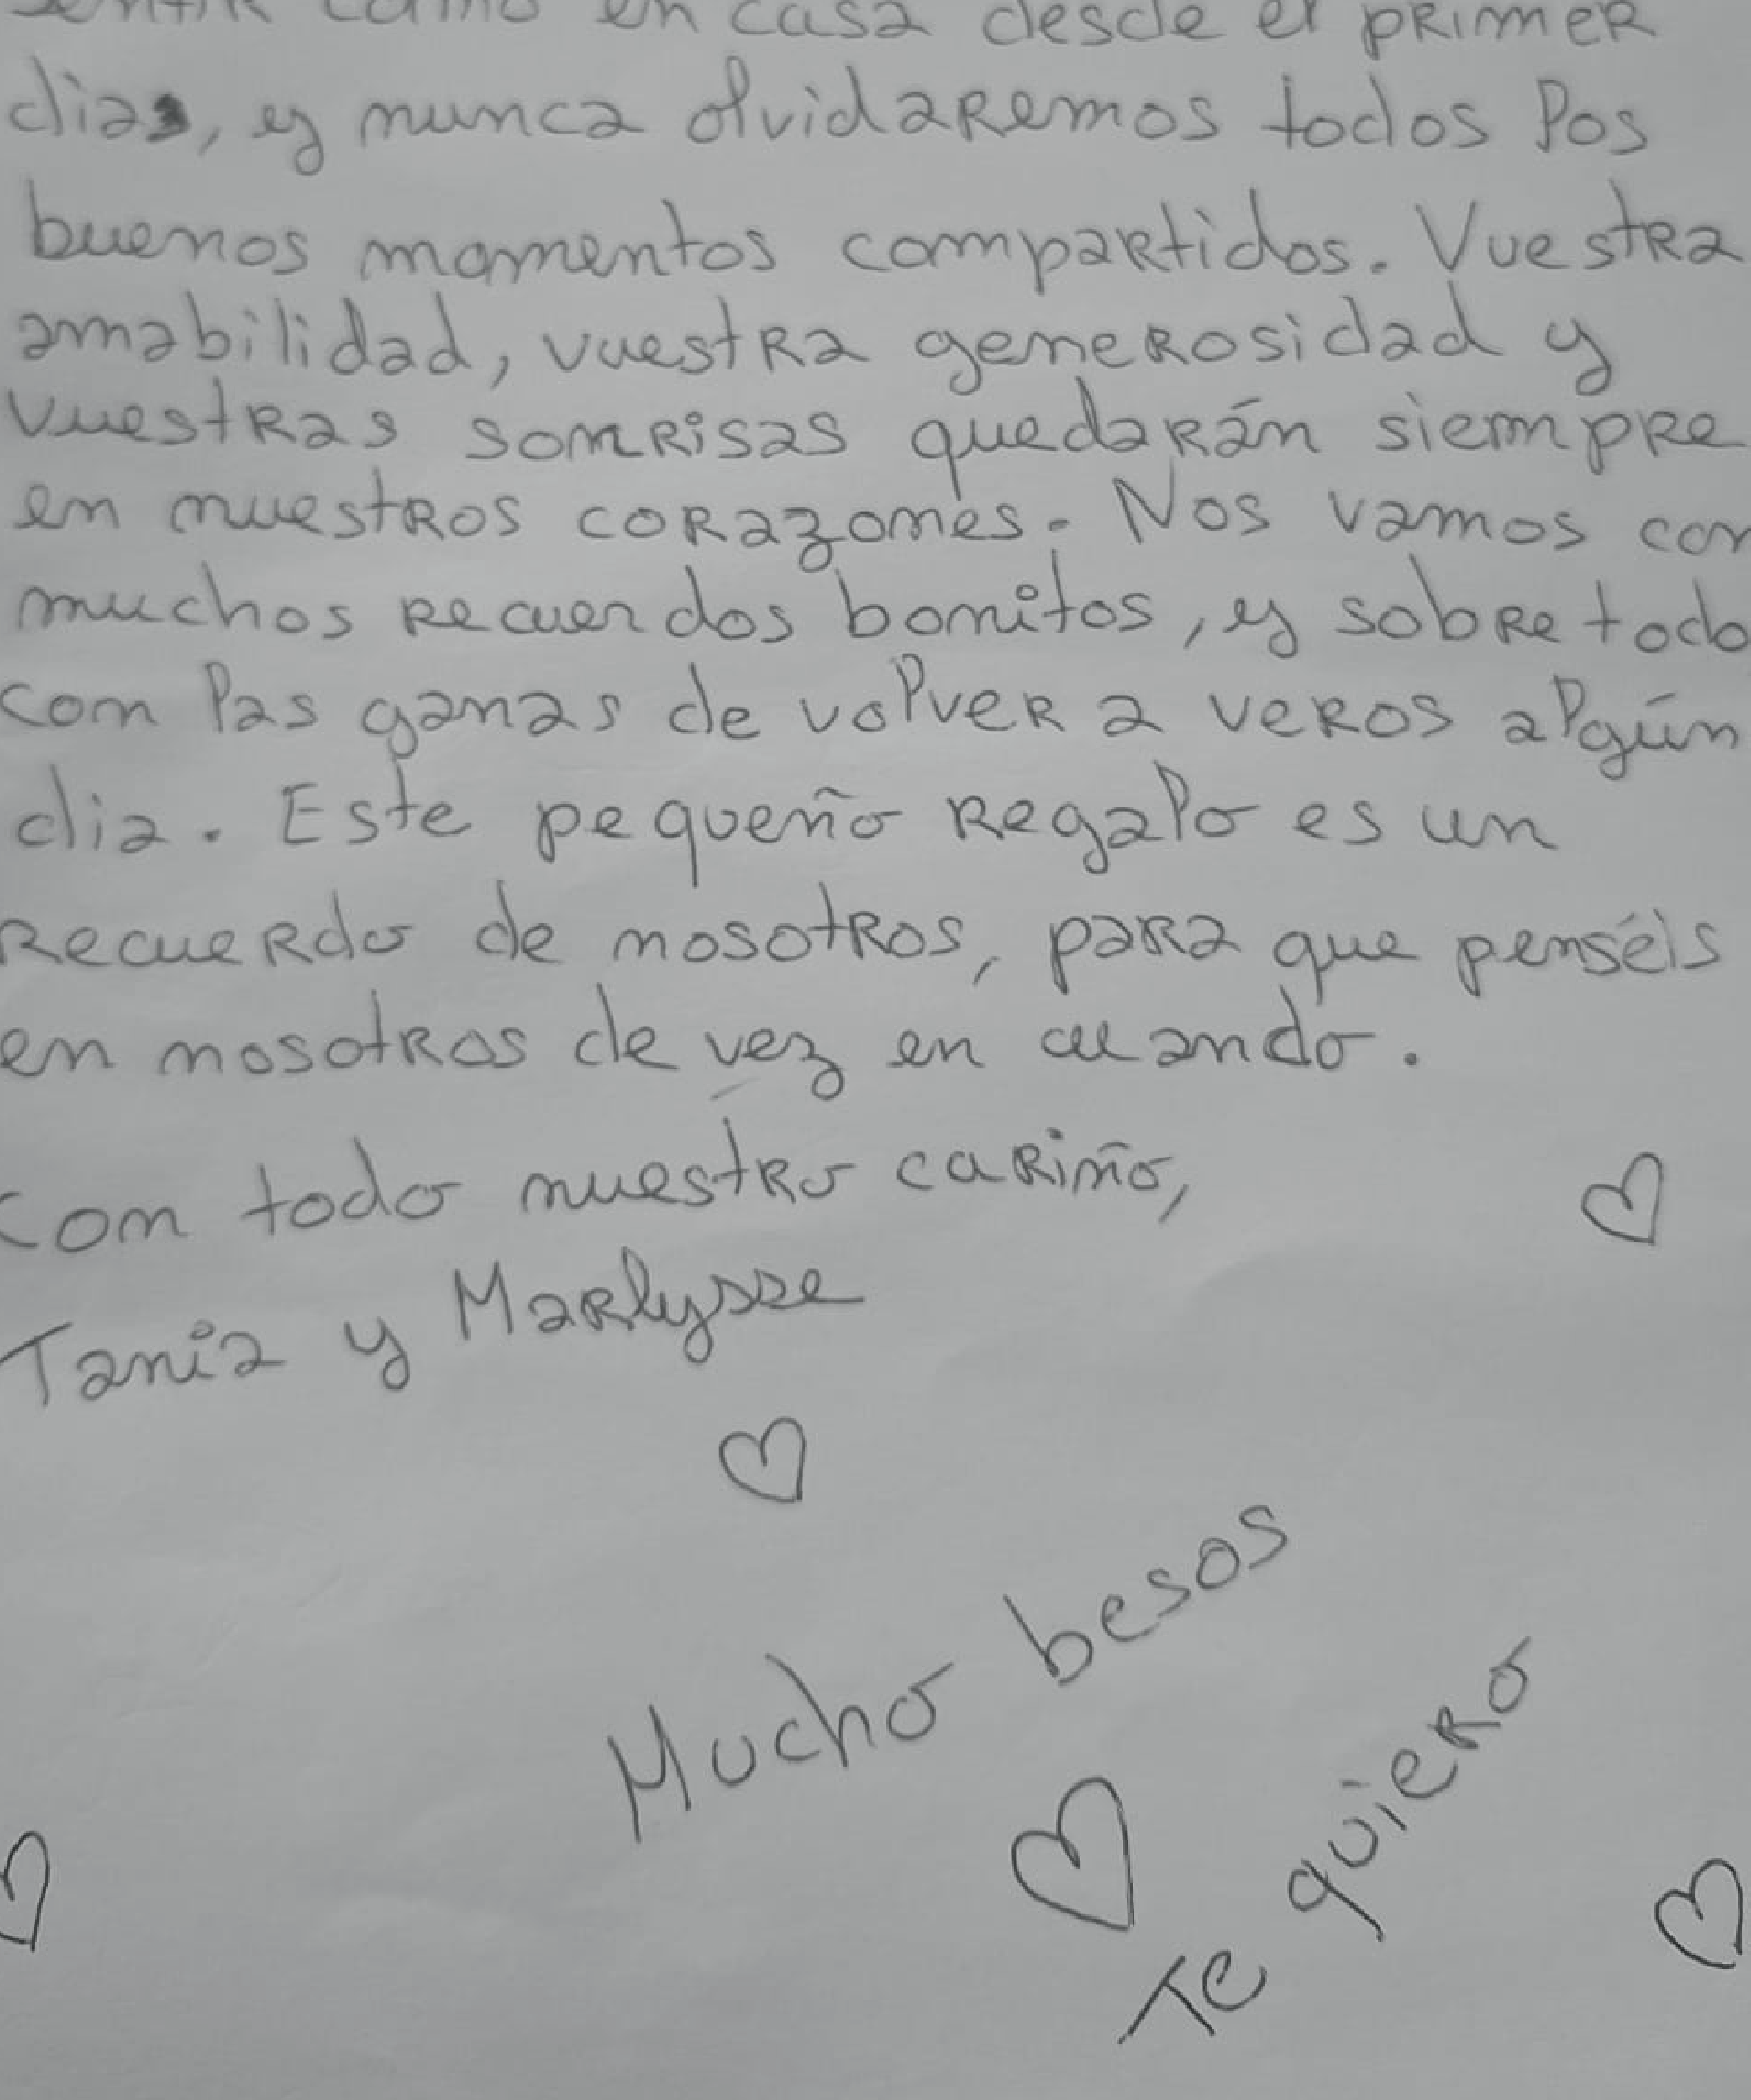 sentir como en casa desde el primer
dias, y nunca olvidaremos todos los
buenos momentos compartidos. Vuestra
amabilidad, vuestra generosidad y
vuestras sonrisas quedarán siempre
en nuestros corazones. Nos vamos con
muchos recuerdos bonitos, y sobre todo
con las ganas de volver a veros algún
dia. Este pequeño regalo es un
recuerdo de nosotros, para que penséis
en nosotros de vez en cuando.
Con todo nuestro cariño,
Tania y Marlysse
Mucho besos
Te quiero